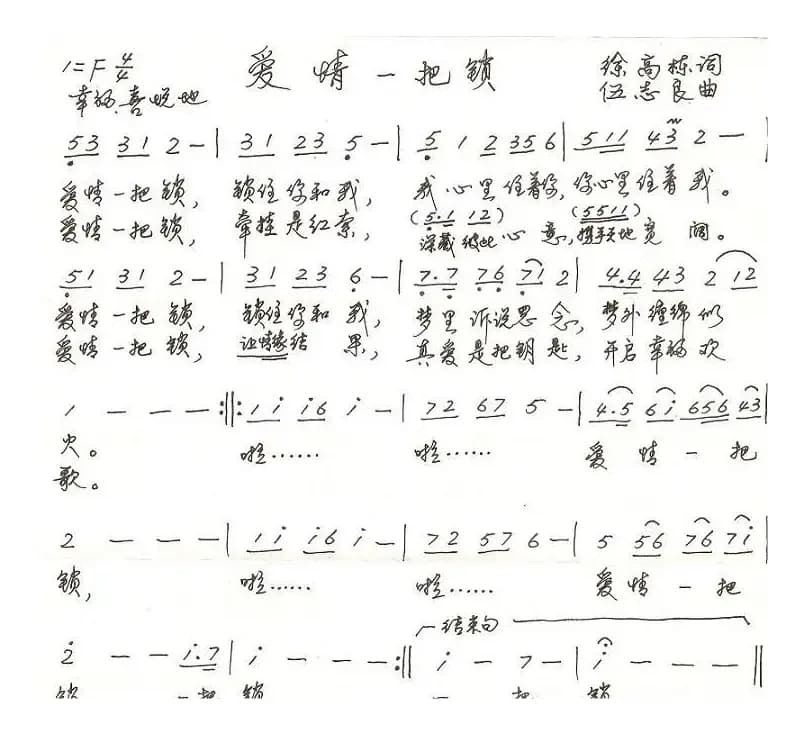 1=F 4/4 爱情一把锁 徐高栋词
幸福、喜悦地 伍志良曲
53 31 2 - | 31 23 5 - | 5 1 2 35 6 | 511 43 2 - |
爱情一把锁, 锁住你和我, 我心里住着你, 你心里住着我。
(5·1 12) (5511)
爱情一把锁, 牵挂是红索, 深藏彼此心意, 携手天地宽阔。
51 31 2 - | 31 23 6 - | 7·7 76 71 2 | 4·4 43 2 12
爱情一把锁, 锁住你和我, 梦里诉说思念, 梦外缠绵似
爱情一把锁, 让情缘结果, 真爱是把钥匙, 开启幸福欢
1 - - - :||: 1i i6 i - | 72 67 5 - | 4·5 6i 656 43 |
火。 啦…… 啦…… 爱情一把
歌。
2 - - - | 1i i6 i - | 72 57 6 - | 5 56 76 7i |
锁, 啦…… 啦…… 爱情一把
结束句
2 - - i·7 | i - - - :|| i - 7 - | i - - - ||
锁 一把锁 一把锁